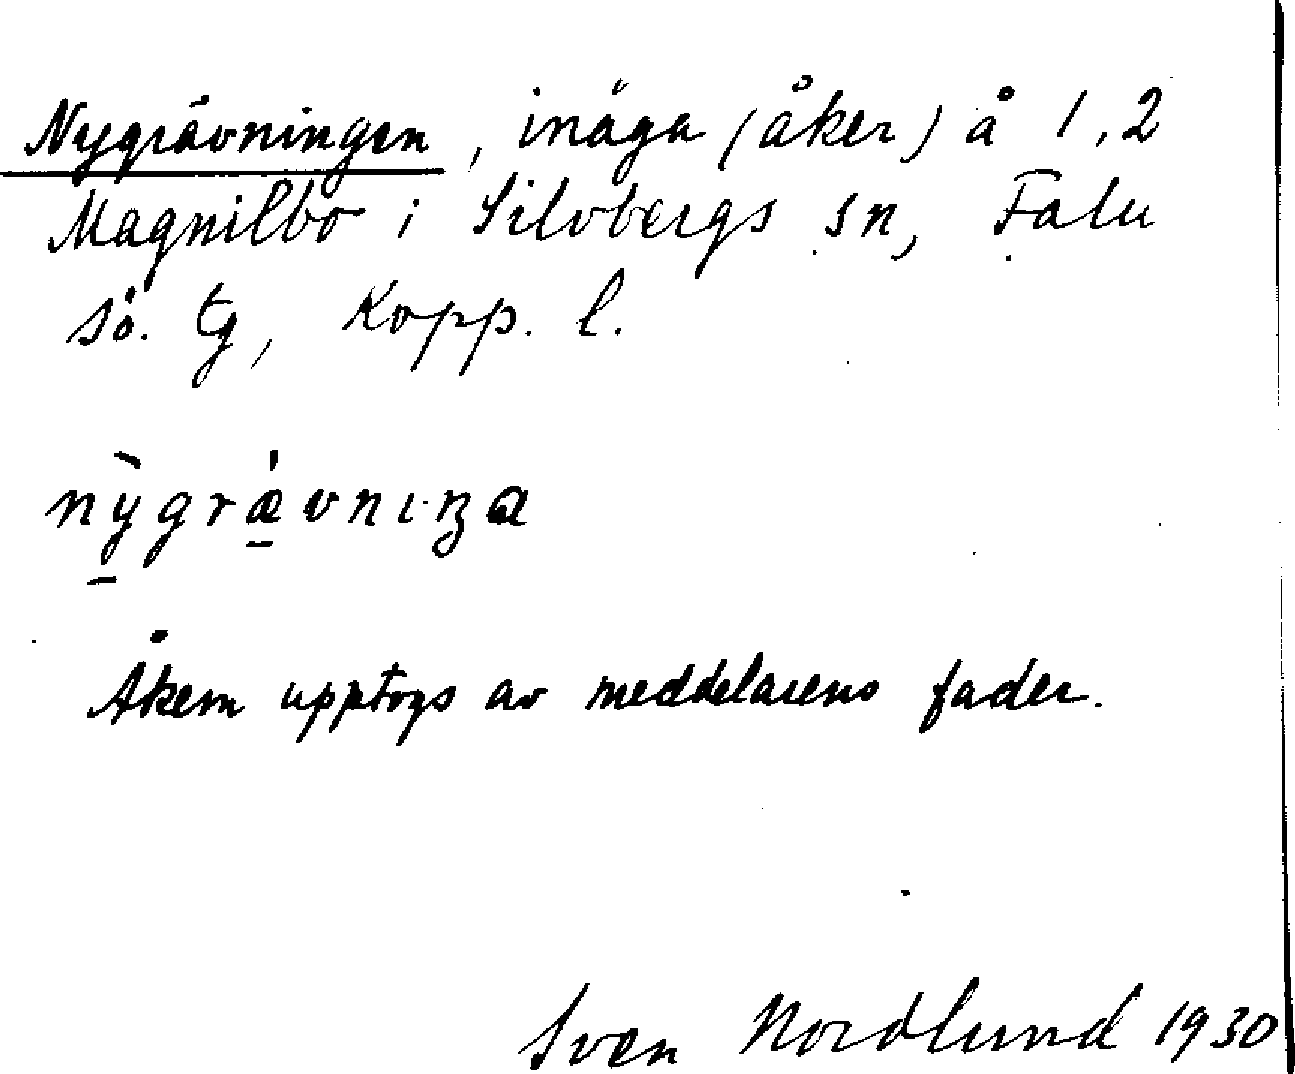 Nygrävningen, inäga (åker) å 1,2
Magnilbo i Silvbergs sn, Falu
sö. tg, Kopp. l.
nỳgrævnıŋa
Åkern upptogs av meddelarens fader.
Sven Nordlund 1930